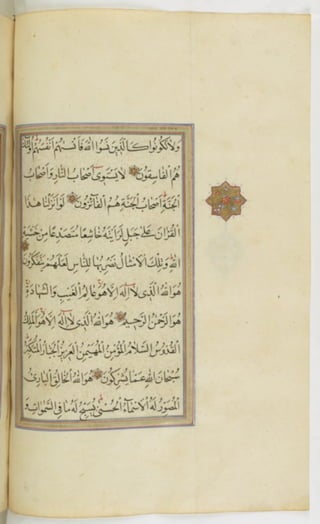 وَلَا تَكُونُوا كَالَّذِينَ نَسُوا اللَّهَ فَأَنْسٰهُمْ أَنْفُسَهُمْ أُولٰئِكَ
هُمُ الْفَاسِقُونَ لَا يَسْتَوِي أَصْحَابُ النَّارِ وَأَصْحَابُ
الْجَنَّةِ أَصْحَابُ الْجَنَّةِ هُمُ الْفَائِزُونَ لَوْ أَنْزَلْنَا هٰذَا
الْقُرْآنَ عَلَىٰ جَبَلٍ لَرَأَيْتَهُ خَاشِعًا مُتَصَدِّعًا مِنْ خَشْيَةِ
اللَّهِ وَتِلْكَ الْأَمْثَالُ نَضْرِبُهَا لِلنَّاسِ لَعَلَّهُمْ يَتَفَكَّرُونَ
هُوَ اللَّهُ الَّذِي لَا إِلٰهَ إِلَّا هُوَ عَالِمُ الْغَيْبِ وَالشَّهَادَةِ
هُوَ الرَّحْمٰنُ الرَّحِيمُ هُوَ اللَّهُ الَّذِي لَا إِلٰهَ إِلَّا هُوَ الْمَلِكُ
الْقُدُّوسُ السَّلَامُ الْمُؤْمِنُ الْمُهَيْمِنُ الْعَزِيزُ الْجَبَّارُ الْمُتَكَبِّرُ
سُبْحَانَ اللَّهِ عَمَّا يُشْرِكُونَ هُوَ اللَّهُ الْخَالِقُ الْبَارِئُ
الْمُصَوِّرُ لَهُ الْأَسْمَاءُ الْحُسْنَىٰ يُسَبِّحُ لَهُ مَا فِي السَّمٰوَاتِ وَ